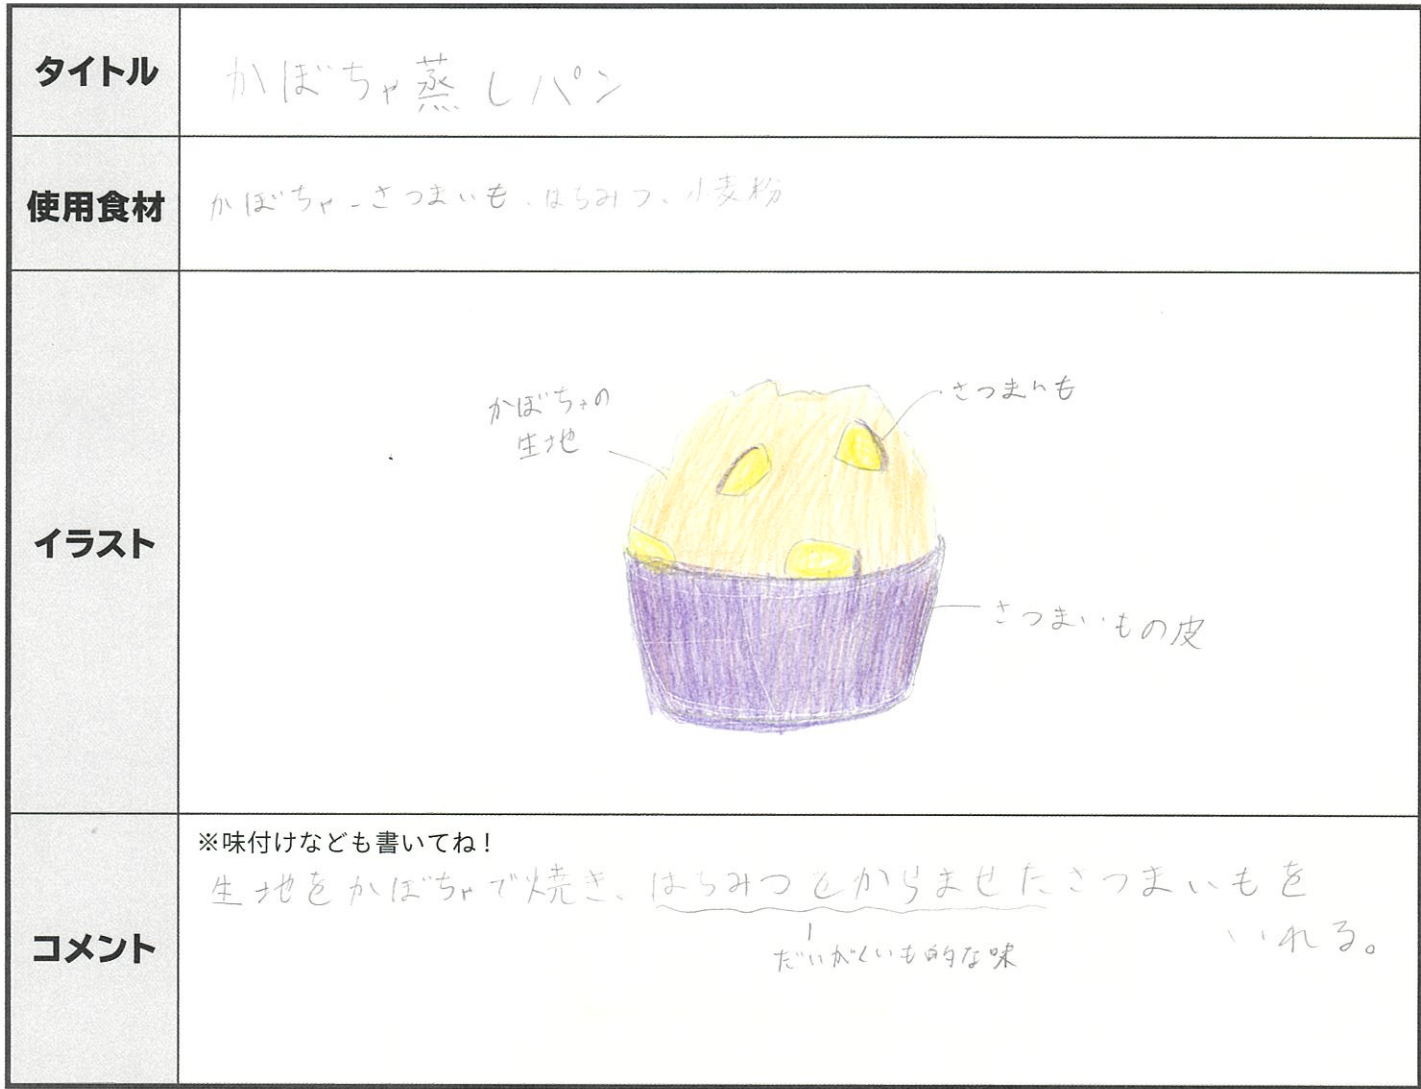 タイトル
かぼちゃ蒸しパン
使用食材
かぼちゃ、さつまいも、はちみつ、小麦粉
イラスト
かぼちゃの
生地
さつまいも
さつまいもの皮
コメント
※味付けなども書いてね!
生地をかぼちゃで焼き、はちみつとからませたさつまいもを
いれる。
だいがくいも的な味